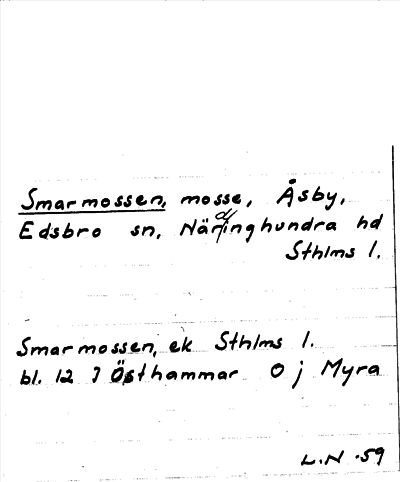 Smarmossen, mosse, Åsby,
Edsbro sn, Närdinghundra hd
Sthlms l.
Smarmossen, ek Sthlms l.
bl. 12 J Östhammar O j Myra
L.N -59